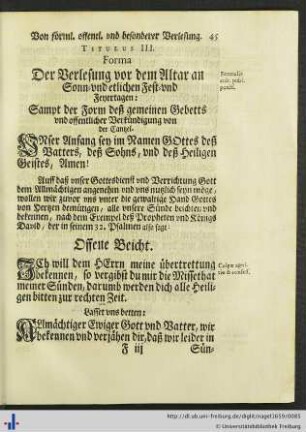 Von forml. offentl. vnd besonderer Verlesung. 45
TITULUS III.
Forma
Der Verlesung vor dem Altar an
Sonn- vnd etlichen Fest- vnd
Feyertagen:
Sampt der Form deß gemeinen Gebetts
vnd offentlicher Verkündigung von
der Cantzel.
VNser Anfang sey im Namen GOttes deß
Vatters, deß Sohns, vnd deß Heiligen
Geistes, Amen!
Auff daß vnser Gottesdienst vnd Verrichtung Gott
dem Allmächtigen angenehm vnd vns nutzlich seyn möge,
wollen wir zuvor vns vnter die gewaltige Hand Gottes
von Hertzen demütigen, alle vnsere Sünde beichten vnd
bekennen, nach dem Exempel deß Propheten vnd Königs
David, der in seinem 32. Psalmen also sagt:
Offene Beicht.
ICh will dem HErrn meine übertrettung
bekennen, so vergibst du mir die Missethat
meiner Sünden, darumb werden dich alle Heili-
gen bitten zur rechten Zeit.
Lasset vns betten:
ALmächtiger Ewiger Gott vnd Vatter, wir
bekennen vnd verjähen dir, daß wir leider in
F iij Sün-
http://dl.ub.uni-freiburg.de/diglit/nagel1659/0085
© Universitätsbibliothek Freiburg